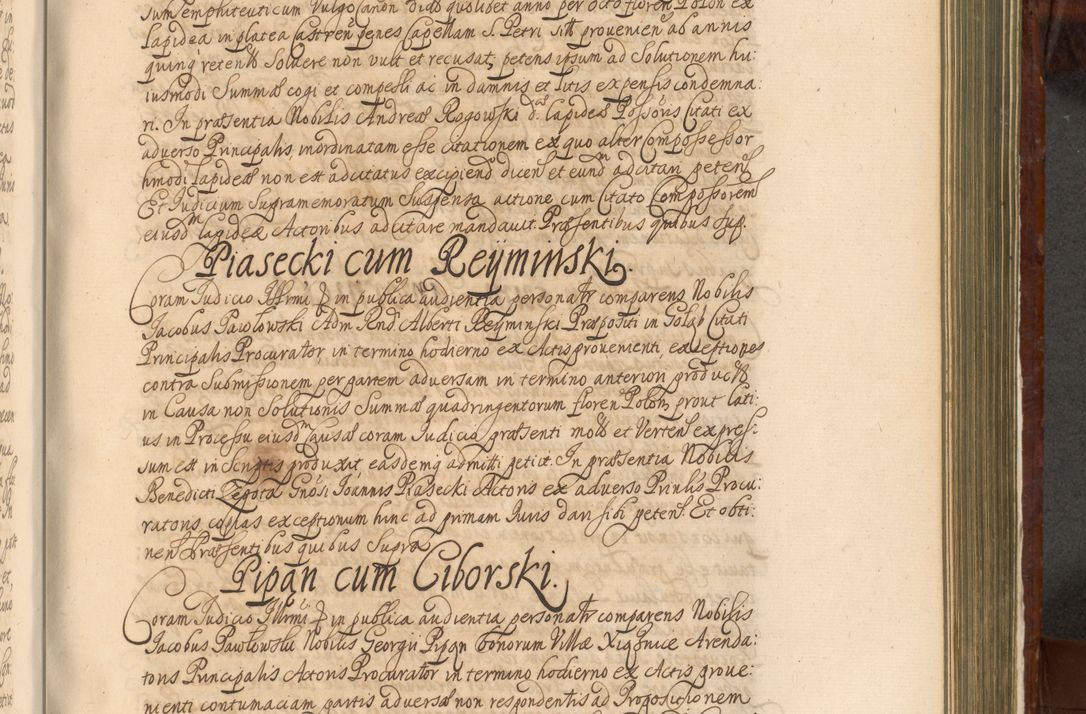 sum Emphiteuticum Vulgo Canon dictū quolibet anno per octo floren Polon ex
Lapidea in platea Castren penes Capellam S. Petri sitt provenien ab annis
quinq retentt Soluere non vult et recusat, petens ipsum ad Solutionem hu:
iusmodi Summæ cogi et compelli ac in damnis et litis expensis condemna:
ri. In præsentia Nobilis Andreæ Rogowski d. lapideæ Possoris Citati ex
adverso Principalis, inordinatam esse citationem ex quo alter Compossessor
hmodi lapideæ non est adcitatus excipien dicen et eund adcitari peten
Et Judicium Supramemoratum Suspensa actione cum Citato Compossorem
eiusdm lapideæ Actoribus adcitare mandavit. Præsentibus quibus sup.
Piasecki cum Reÿminski.
Coram Judicio Illrmi & in publica audientia personatr comparens Nobilis
Jacobus Pawlowski Adm Rnd Alberti Reÿminski Præpositi in Goląb Citati
Principalis Procurator in termino hodierno ex Actis provenienti, exceptiones
contra Submissionem per partem adversam in termino anteriori product
in Causa non Solutionis Summæ quadringentorum floren Polon, prout lati:
us in Processu eiusdm Causæ coram Judicio præsenti mott et Verten expres:
sum est in Scriptis produxit easdemq admitti petiit. In præsentia Nobilis
Benedicti Zegota Gnosi Joannis Piasecki Actoris ex adverso Prinlis Procu:
ratoris copias exceptionum hinc ad primam Juris dari sibi peten. Et obti:
nen Præsentibus quibus Supra
Pipan cum Ciborski.
Coram Judicio Illrmi & in publica audientia personatr comparens Nobilis
Jacobus Pawlowski Nobilis Georgii Pipan bonorum Villæ Xiąznice Arenda:
toris Principalis Actoris Procurator in termino hodierno ex Actis prove:
nienti contumaciam partis adversæ non respondentis ad Propositionem